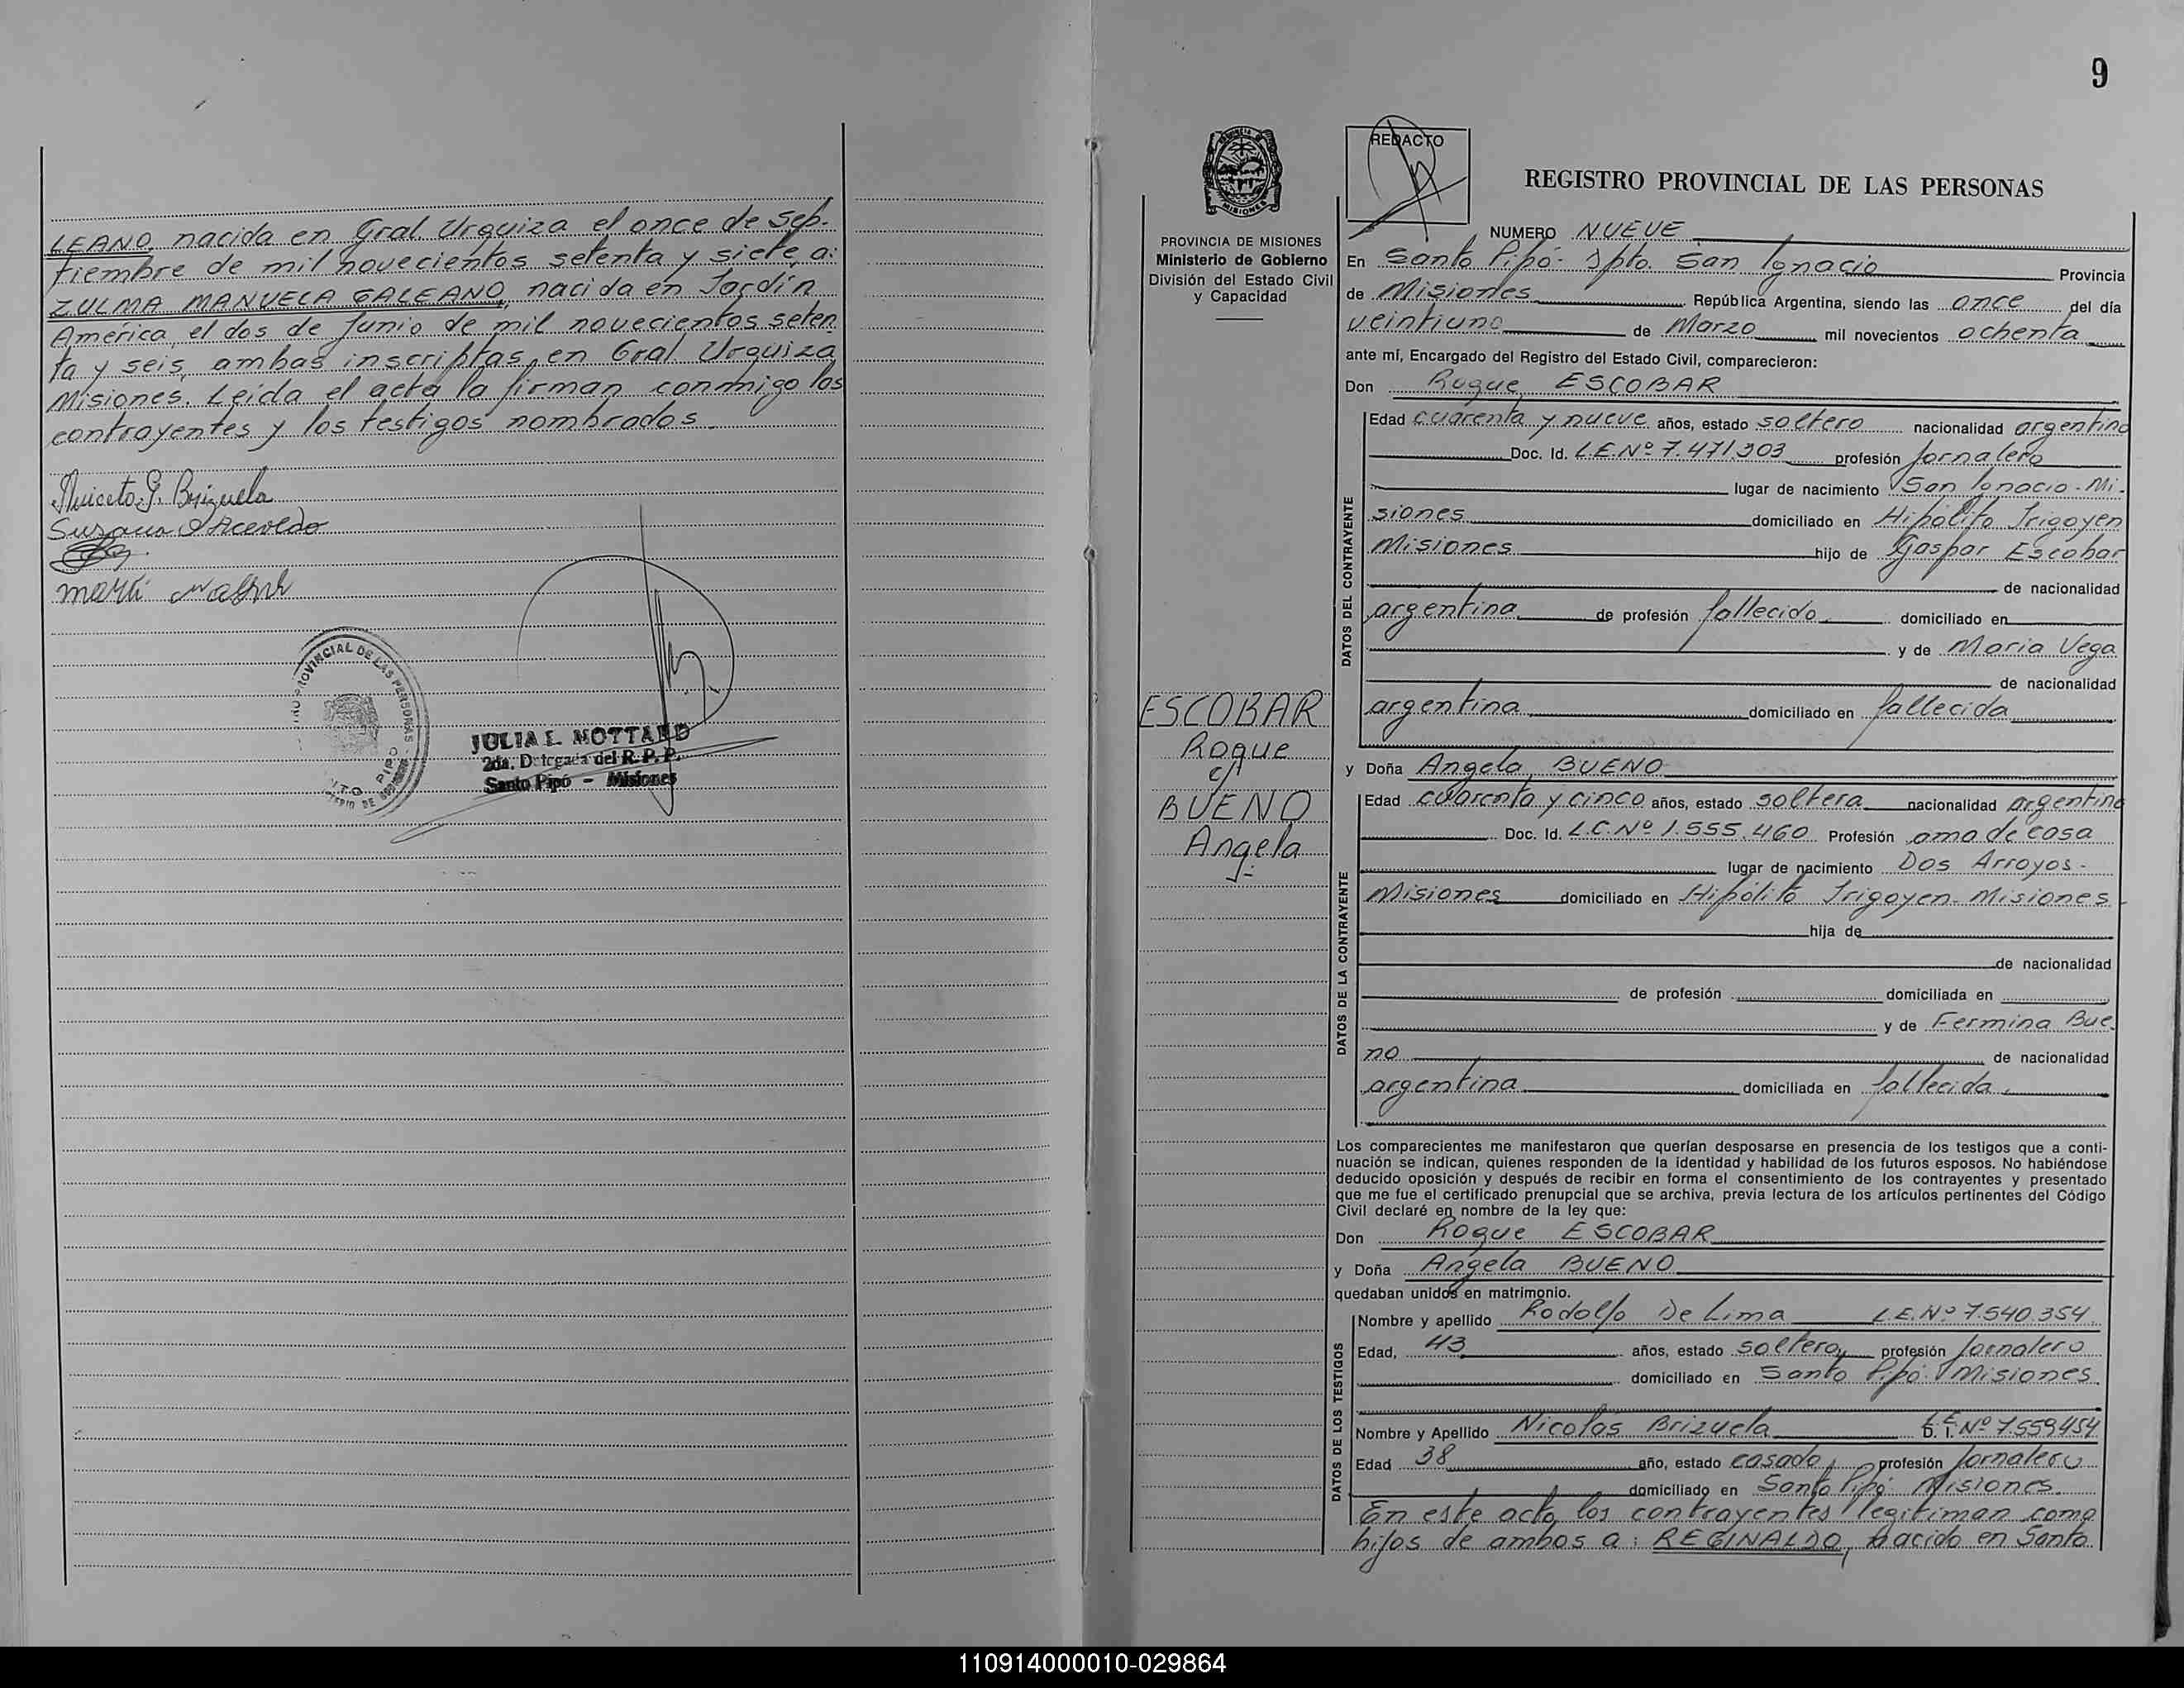 LEANO, nacida en Gral Urquiza el once de sep-
tiembre de mil novecientos setenta y siete, a:
ZULMA MANUELA GALEANO, nacida en Jardín
América, el dos de Junio de mil novecientos seten
ta y seis, ambas inscriptas en Gral Urquiza
Misiones. Leída el acta la firman conmigo los
contrayentes y los testigos nombrados.
Aniceto G. Brizuela
Susana Acevedo
JULIA L. MOTTARD
2da. Delegada del R. P. P.
Santo Pipó - Misiones
9
REDACTO
REGISTRO PROVINCIAL DE LAS PERSONAS
PROVINCIA DE MISIONES
Ministerio de Gobierno
División del Estado Civil
y Capacidad
ESCOBAR
Roque
c/
BUENO
Angela
NUMERO NUEVE
En Santo Pipó - Dpto. San Ignacio Provincia
de Misiones República Argentina, siendo las once del día
veintiuno de Marzo mil novecientos ochenta
ante mí, Encargado del Registro del Estado Civil, comparecieron:
Don Roque ESCOBAR
DATOS DEL CONTRAYENTE
Edad cuarenta y nueve años, estado soltero nacionalidad argentina
Doc. Id. L.E.Nº 7.471.303 profesión jornalero
lugar de nacimiento San Ignacio - Mi-
siones domiciliado en Hipólito Irigoyen
Misiones hijo de Gaspar Escobar
de nacionalidad
argentina de profesión fallecido domiciliado en
y de Maria Vega
de nacionalidad
argentina domiciliado en fallecida
y Doña Angela BUENO
DATOS DE LA CONTRAYENTE
Edad cuarenta y cinco años, estado soltera nacionalidad argentina
Doc. Id. L.C.Nº 1.555.460 Profesión ama de casa
lugar de nacimiento Dos Arroyos -
Misiones domiciliado en Hipólito Irigoyen - Misiones
hija de
de nacionalidad
de profesión domiciliada en
y de Fermina Bue
no de nacionalidad
argentina domiciliada en fallecida
Los comparecientes me manifestaron que querían desposarse en presencia de los testigos que a conti-
nuación se indican, quienes responden de la identidad y habilidad de los futuros esposos. No habiéndose
deducido oposición y después de recibir en forma el consentimiento de los contrayentes y presentado
que me fue el certificado prenupcial que se archiva, previa lectura de los artículos pertinentes del Código
Civil declaré en nombre de la ley que:
Don Roque ESCOBAR
y Doña Angela BUENO
quedaban unidos en matrimonio.
DATOS DE LOS TESTIGOS
Nombre y apellido Rodolfo De Lima L.E.Nº 7.540.354
Edad, 43 años, estado soltero, profesión jornalero
domiciliado en Santo Pipó Misiones
Nombre y Apellido Nicolás Brizuela L.E. D. I. Nº 7.559.454
Edad 38 año, estado casado, profesión jornalero
domiciliado en Santo Pipó Misiones
En este acto, los contrayentes legitiman como
hijos de ambos a: REGINALDO, nacido en Santo
110914000010-029864